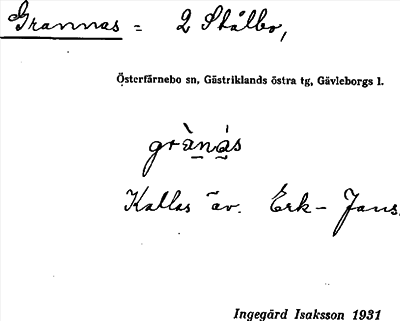 Grannas = 2 Stålbo,
Österfärnebo sn, Gästriklands östra tg, Gävleborgs l.
grànás
Kallas äv. Erk-Jans.
Ingegärd Isaksson 1931